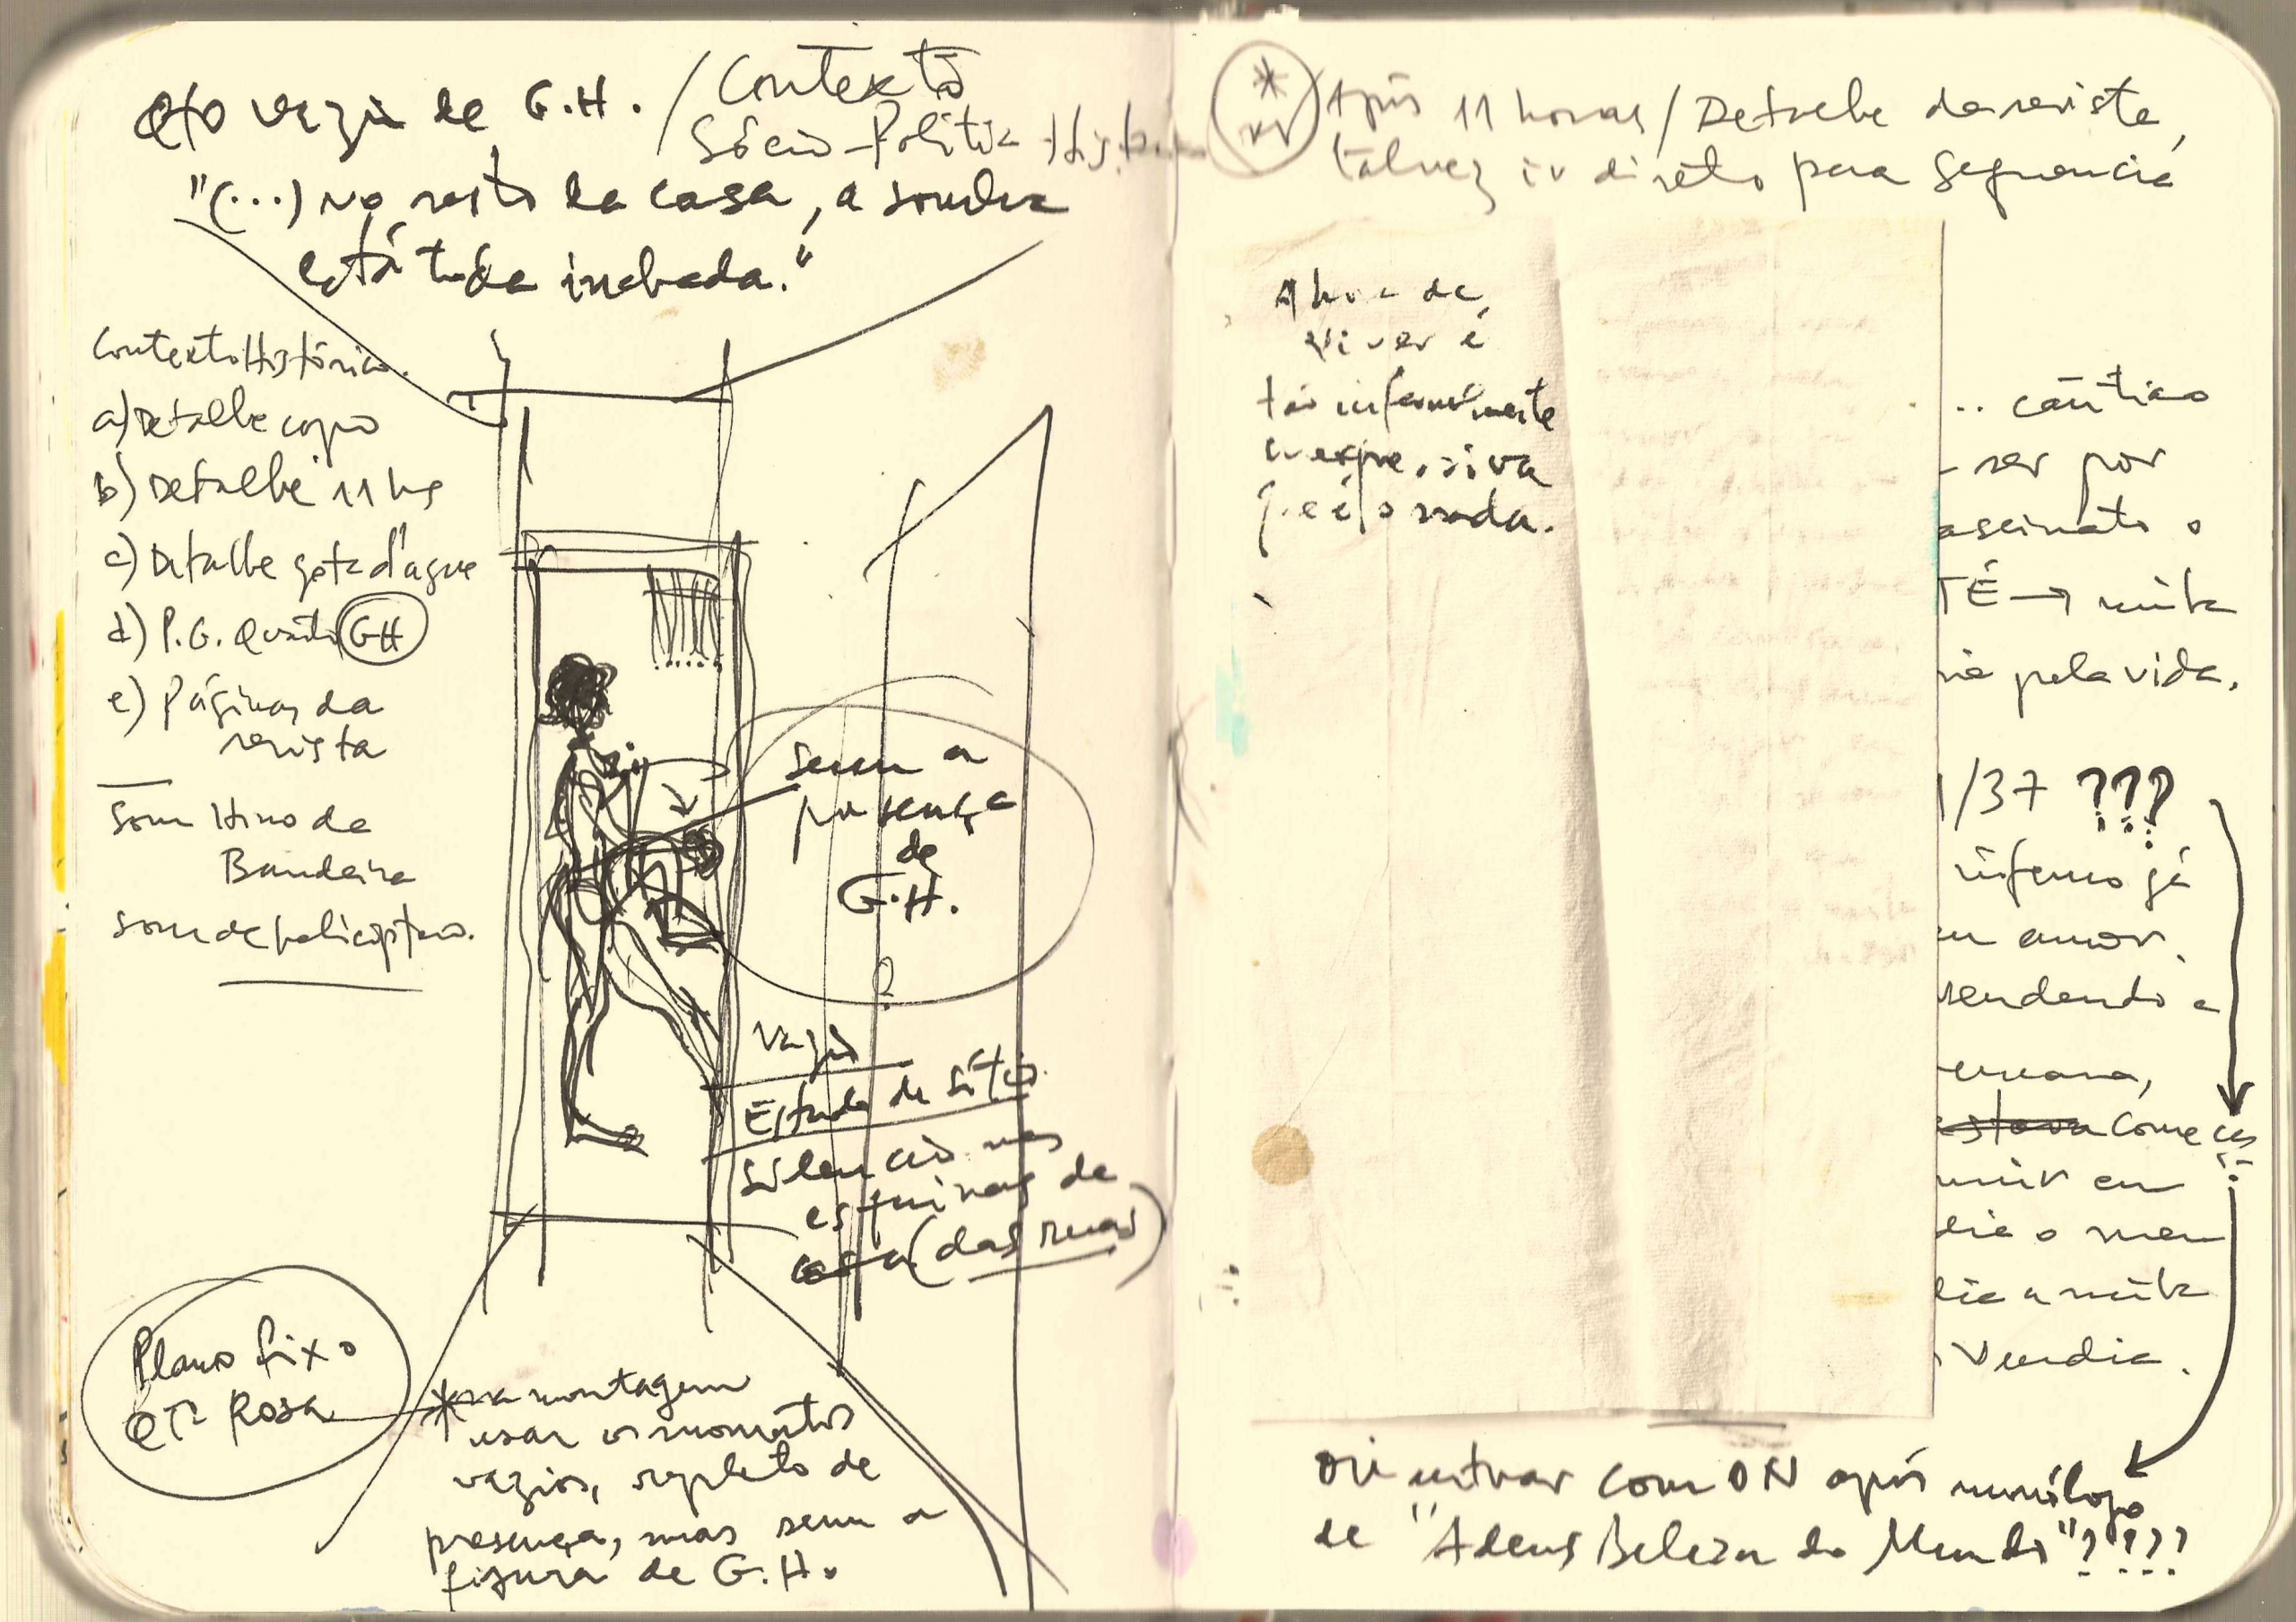 Qto vazio de G.H. / Contexto
Sócio-Polític Hist
"(...) no resto da casa, a sombra
está toda inchada."
Contexto Histórico.
a) Detalhe copo
b) Detalhe 11 hs
c) Detalhe gota d'água
d) P.G. Quarto GH
e) Páginas da
revista
Som Hino da
Bandeira
som de helicóptero.
sem a
presença
de
G.H.
?
Vazio
Estado de Sítio
Silêncio nas
esquinas da
casa (das ruas)
Plano fixo
QTº Rosa
* na montagem
usar os momentos
vazios, repleto de
presença, mas sem a
figura de G.H.
* Após 11 horas / Detalhe da revista,
talvez ir direto para sequencia
A hora de
viver é
tão infernalmente
inexpressiva
que é o nada.
... cântico
ser por
assassinato o
TÉ → minha
pela vida.
1/37 ???
inferno já
eu amor.
vendendo a
humana,
estava comecei
em
dia o meu
dia a minha
Vendia.
ou entrar com ON após monólogo
de "Adeus Beleza do Mundo"????